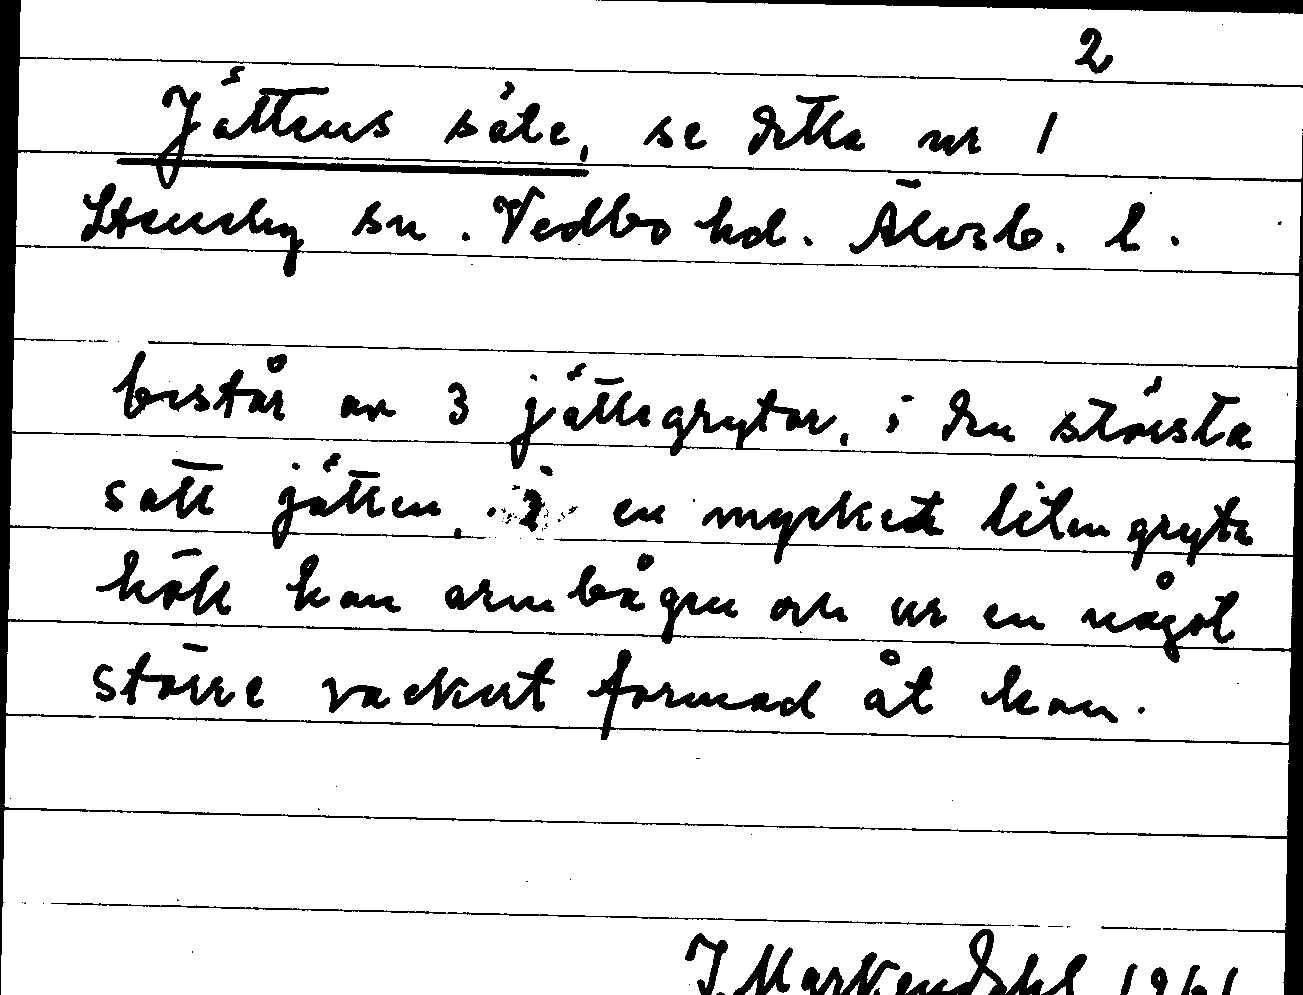 2
Jättens säte, se detta nr 1
Steneby sn. Vedbo hd. Älvsb. l.
består av 3 jättegrytor, i den största
satt jätten, i en mycket liten gryta
höll han armbågen och ur en något
större vackert formad åt han.
J. Markendahl 1961